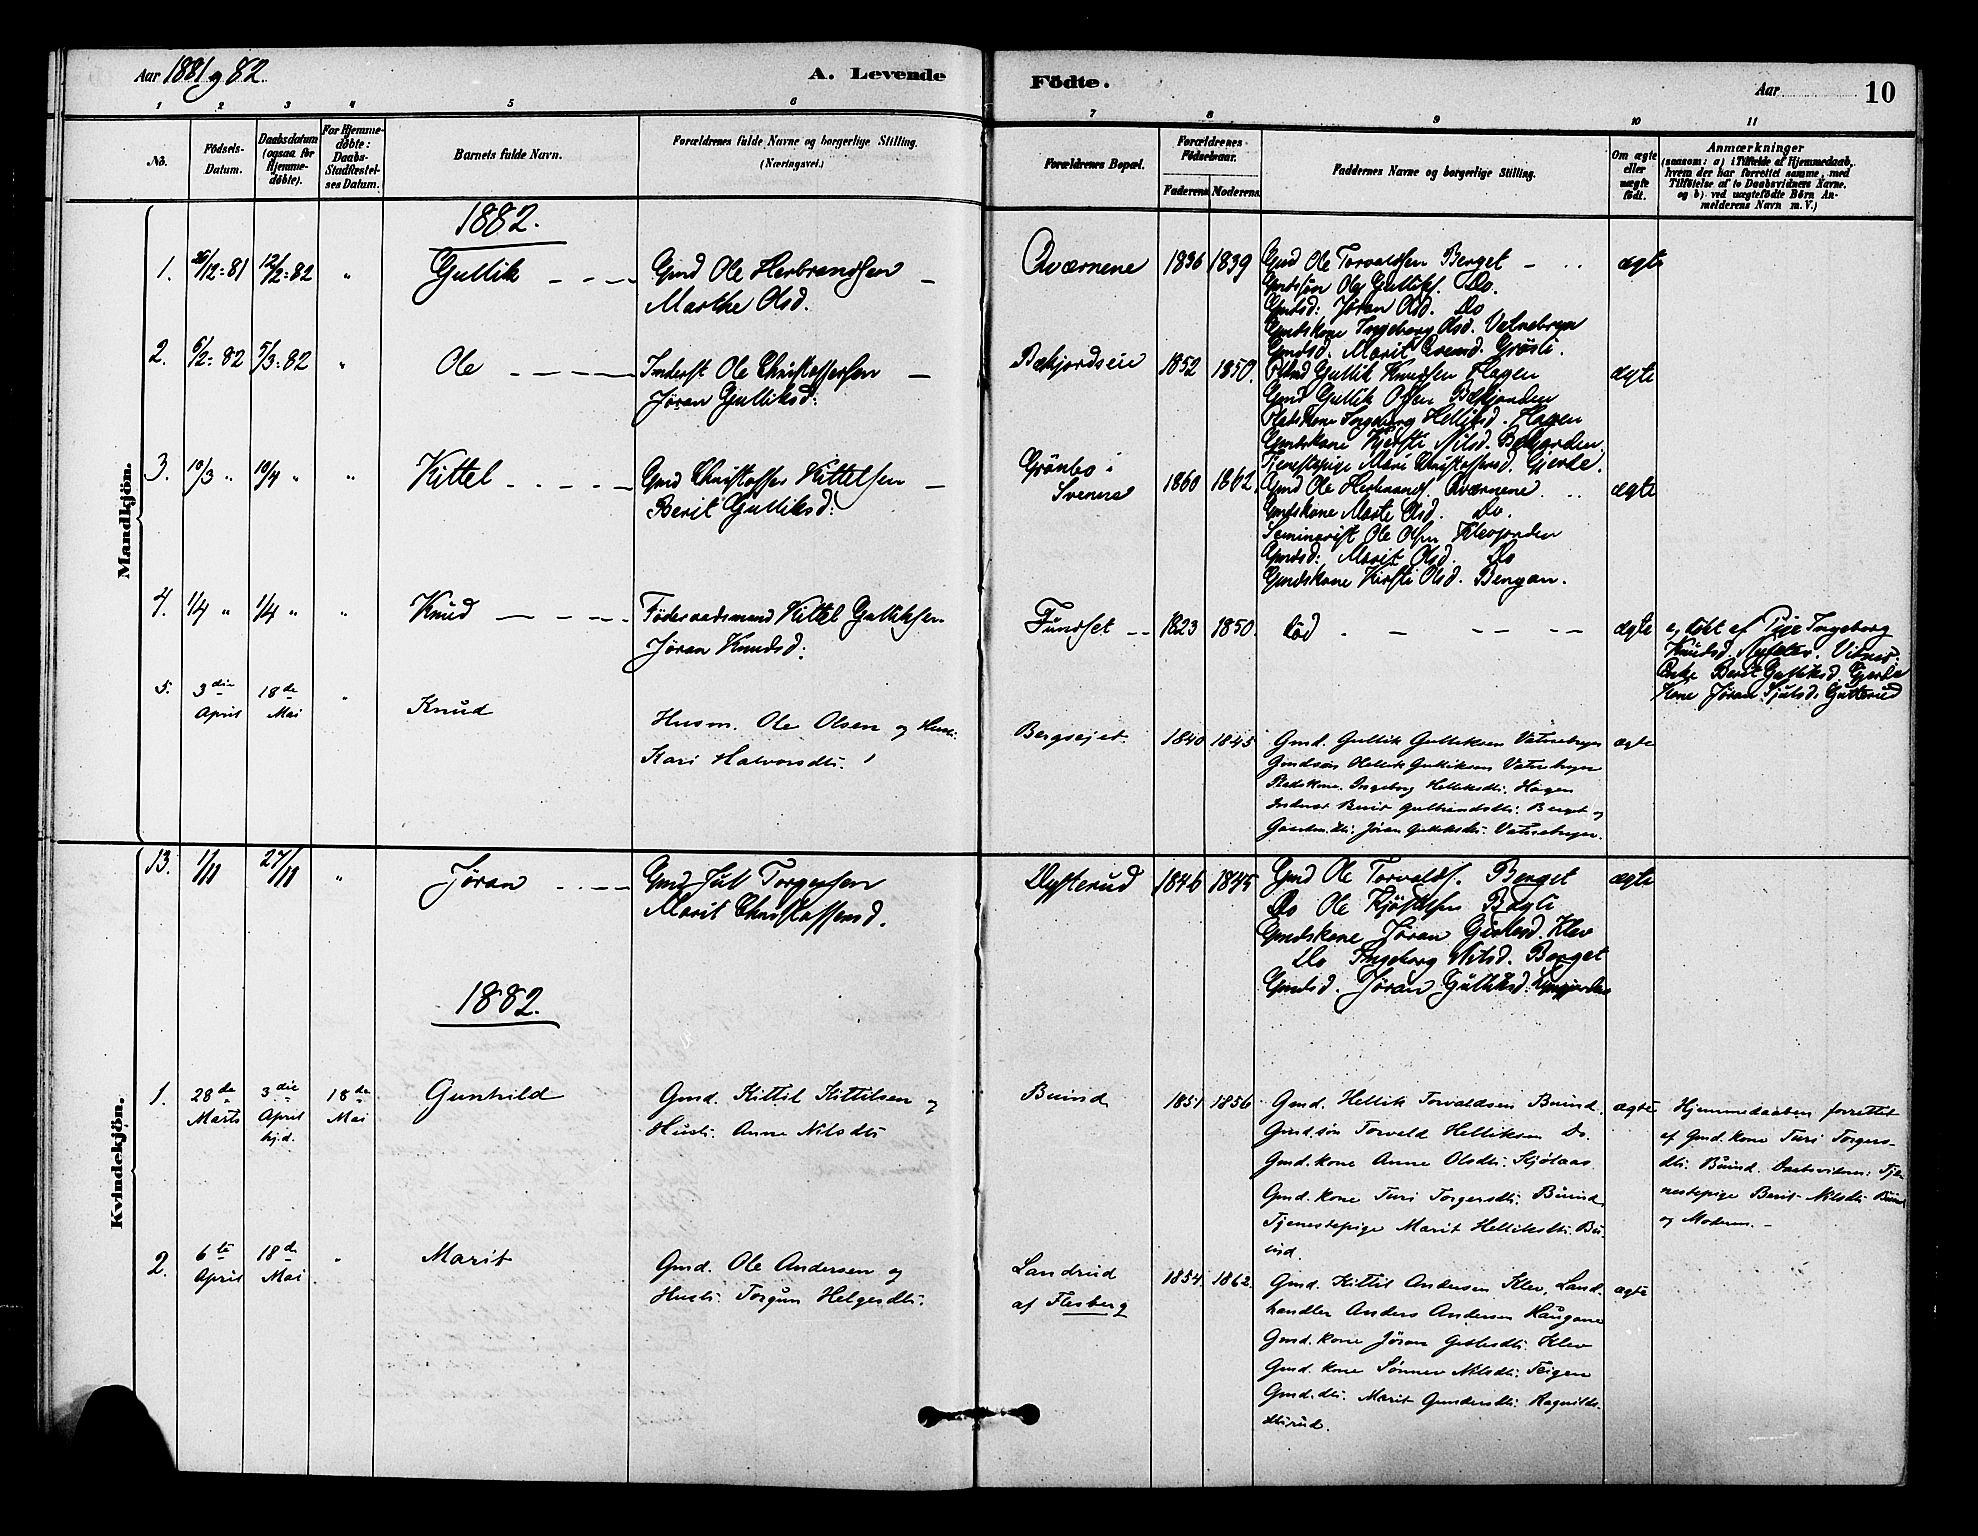 Aar 1881 og 82.
A. Levende
Födte.
Aar
10
1 2 3 4 5 6 7 8 9 10 11
No.
Födsels-Datum.
Daabsdatum (ogsaa for Hjemme-döbte).
For Hjemme-döbte: Daabs-Stadfæstelses Datum.
Barnets fulde Navn.
Forældrenes fulde Navne og borgerlige Stilling. (Næringsvei.)
Forældrenes Bopæl.
Forældrenes Födselsaar.
Faderens Moderens.
Faddernes Navne og borgerlige Stilling.
Om ægte eller uægte födt.
Anmærkninger
(saasom: a) i Tilfælde af Hjemmedaab, hvem der har forrettet samme, med Tilföielse af to Daabsvidners Navne. og b) ved uægtefödte Börn Anmelderens Navn m. V.)
Mandkjön.
1882.
1. 26/12=81 12/2=82 " Gullik
Gmd Ole Herbrandsen
Marthe Olsd.
Qværnene 1836 1839
Gmd Ole Torvaldsen Berget
Gmdsön Ole Gulliks. Do.
Gmdsd: Jøran Olsd. Do
Gmdskone Ingeborg Olsd. Vatnebryn
Gmdsd. Marit Svensd. Grösli.
ægte
2. 6/2=82 5/3=82 " Ole
Inderst Ole Christoffersen
Jøran Gulliksd:
Bækjordseie 1852 1850.
Gullik Knudsen Hagen
Gmd Gullik Olsen Bækjorden
Pladskone Ingeborg Helliksd. Hagen
Gmdskone Kjersti Nilsd. Bækjorden
Tjenestepige Mari Christoffersd. Gjerde.
ægte
3. 10/3 " 10/4 " " Kittel
Gmd Christoffer Kittelsen
Berit Gulliksd:
Grönbo i
Svenes
1860 1862.
Gmd Ole Herbrands. Qværnene
Gmdskone Marte Olsd. Do.
Seminarist Ole Olsen
Gmdsd: Marit Olsd. Do
Gmdskone Kirsti Olsd. Bengan.
ægte
4. 1/4 " 1/4 " " Knud
Föderaadsmand Kittel Gulliksen
Jøran Knudsd:
Fundset 1823 1850.
död
ægte
a, döbt af Pige Ingeborg
Knudsd. Vidner:
Enke Berit Gulliksd. Gjerde
Kone Jøran Sjulsd. Gutterud
5. 3die April 18de Mai " Knud
Husm. Ole Olsen og Hust:
Kari Halvorsdtr.
Bergsejet. 1840 1845
Gmd. Gullik Gulliksen Vatnebryn
Gmdsön Hellik Gulliksen Vatnebryn
Pladskone Ingeborg Helliksdtr. Hagen
Inderst Berit Gulbrandsdtr. Berget og
Gaardm.dtr. Jøran Gulliksdtr. Vatnebryn.
ægte
Kvindekjön.
13. 1/11 27/11 " Jøran
Gmd Jul Torgersen
Marit Christoffersd.
Dysterud 1846 1845
Gmd Ole Torvalds. Berget
Do Ole Kjöstelsen Bagli
Gmdskone Jøran Gislesd. Klev
Do Ingeborg Nilsd. Berget
Gmdsd. Jøran Gulliksd.
ægte
1882.
1. 28de Marts 3die April hj.d. 18de Mai Gunhild
Gmd. Kittil Kittilsen og
Hustr. Anne Nilsdtr
Buind 1851 1856
Gmd. Hellik Torvaldsen Buind.
Gmd.sön Torvald Helliksen Do.
Gmd.kone Anne Olsdtr. Kjölaas
Gmd.kone Turi Torgersdtr. Buind
Tjenestepige Marit Helliksdtr. Bu-
ind.
ægte
Hjemmedaaben forrettet
af Gmd.kone Turi Torgers-
dtr. Buind. Daabsvidner: Tje-
nestepige Berit Nilsdtr Buind
og Moderen. -
2. 6te April 18de Mai " Marit
Gmd. Ole Andersen og
Hustr. Torgun Helgesdtr.
Landrud
af Flesberg
1854. 1862.
Gmd. Kittil Andersen Klev, Land-
handler Anders Andersen Haugane
Gmd.kone Jøran Gislesdtr. Klev
Gmd.kone Sönnev Nilsdtr. Teigen
Gmd.dtr. Marit Gundersdtr. Ragnilds-
dtirud.
ægte